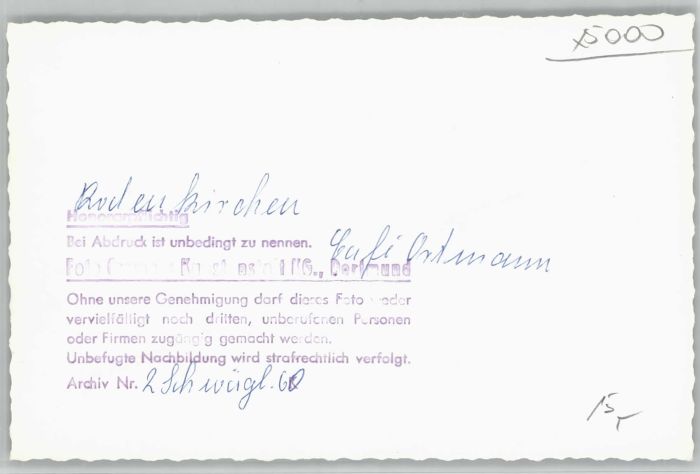 5000
Rodenkirchen
Honorarpflichtig
Bei Abdruck ist unbedingt zu nennen.
Café Ortmann
Foto Kunstanstalt KG., Dortmund
Ohne unsere Genehmigung darf dieses Foto weder
vervielfältigt noch dritten, unberufenen Personen
oder Firmen zugängig gemacht werden.
Unbefugte Nachbildung wird strafrechtlich verfolgt.
Archiv Nr. 2 Schwägl. 60
15,-